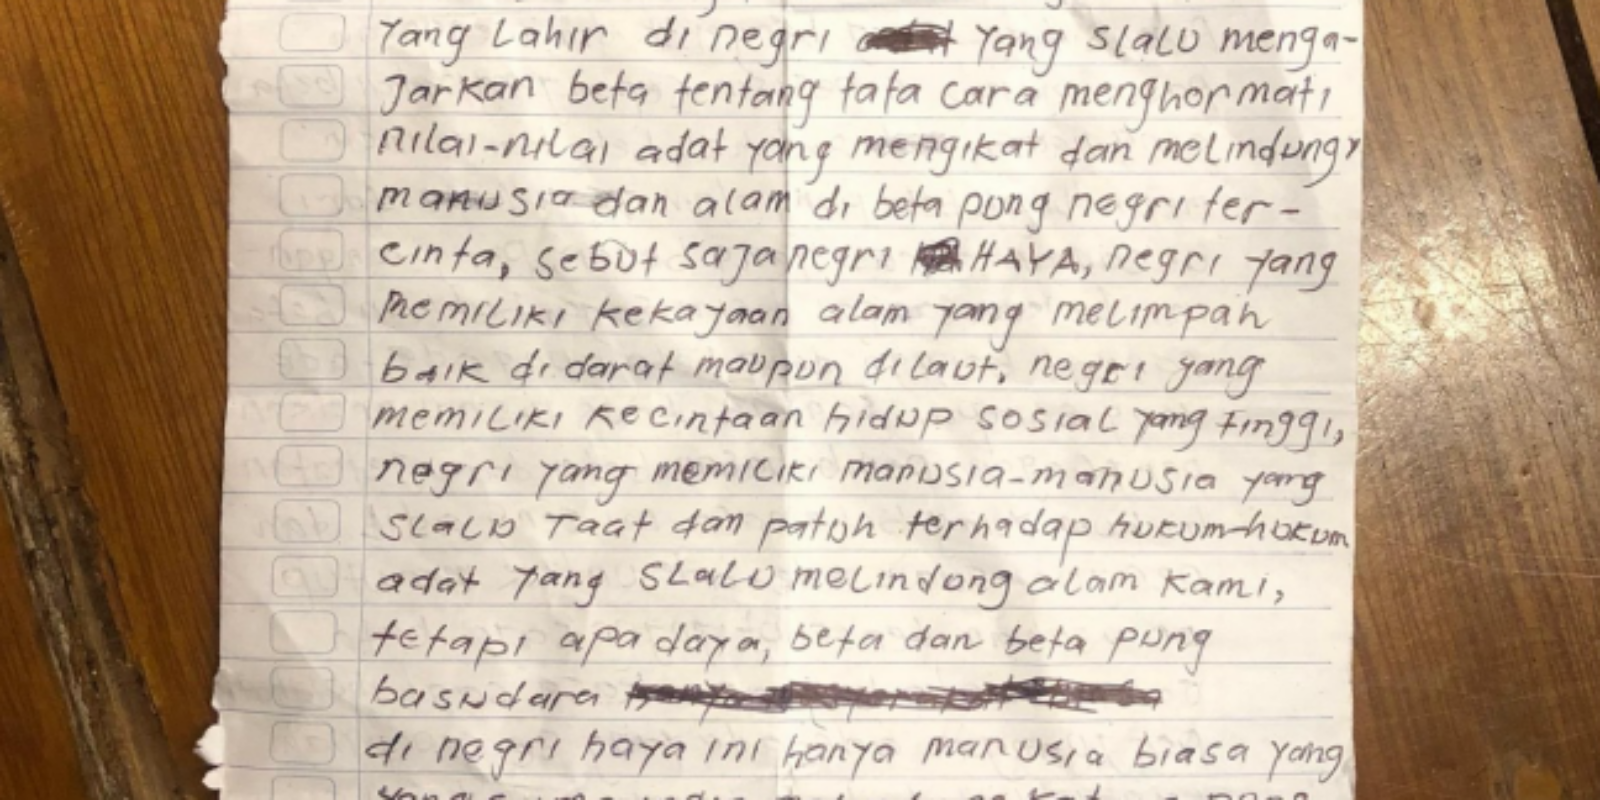 Yang Lahir di negri yang slalu menga-
Jarkan beta tentang tata cara menghormati
nilai-nilai adat yang mengikat dan melindungi
manusia dan alam di beta pung negri ter-
cinta, sebut saja negri HAYA, negri yang
memiliki kekayaan alam yang melimpah
baik di darat maupun dilaut, negri yang
memiliki kecintaan hidup sosial yang tinggi,
negri yang memiliki manusia-manusia yang
slalu Taat dan patuh terhadap hukum-hukum
adat yang slalu melindung alam kami,
tetapi apa daya, beta dan beta pung
basudara
di negri haya ini hanya manusia biasa yang